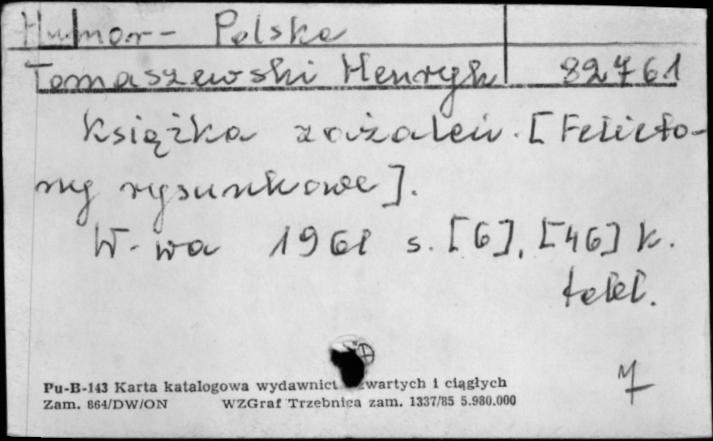 Humor - Polska
Tomaszewski Henryk 82761
Książka zażaleń. [Felieto-
ny rysunkowe].
W-wa 1961 s. [6], [46] k.
tabl.
Pu-B-143 Karta katalogowa wydawnict zwartych i ciągłych
Zam. 864/DW/ON WZGraf Trzebnica zam. 1337/85 5.980.000